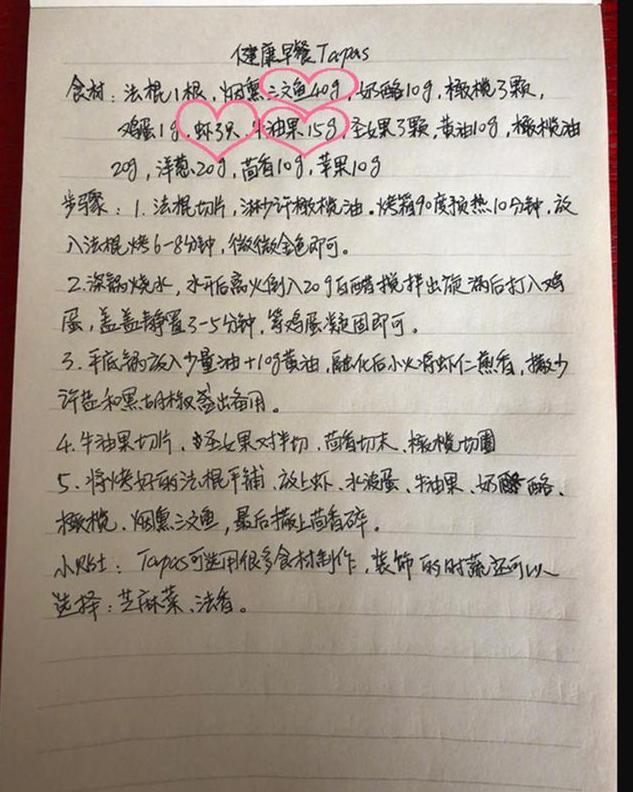 健康早餐Tapas
食材：法棍1根，烟熏三文鱼40g，奶酪10g，橄榄3颗，
鸡蛋1g，虾3只，牛油果15g，圣女果3颗，黄油10g，橄榄油
20g，洋葱20g，茴香10g，苹果10g
步骤：1.法棍切片，淋少许橄榄油。烤箱90度预热10分钟，放
入法棍烤6-8分钟，微微金色即可。
2.深锅烧水，水开后离火倒入20g白醋搅拌出旋涡后打入鸡
蛋，盖盖静置3-5分钟，等鸡蛋凝固即可。
3.平底锅放入少量油+10g黄油，融化后小火将虾仁煎香，撒少
许盐和黑胡椒盛出备用。
4.牛油果切片，圣女果对半切，茴香切末、橄榄切圈
5.将烤好的法棍平铺、放上虾、水波蛋、牛油果、奶酪、
橄榄、烟熏三文鱼，最后撒上茴香碎。
小贴士：Tapas可选用很多食材制作，装饰的时蔬还可以
选择：芝麻菜、法香。